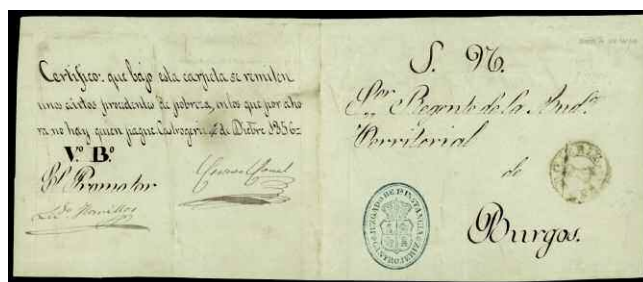 Certifico: que bajo esta carpeta se remiten
unos autos procedentes de pobreza, en los que por aho
ra no hay quien pague. Castrogeriz de Dicbre 1856=
V.º B.º
El Promotor
S. N.
Sor. Regente de la Aud.ª
Territorial
de
Burgos.
JUZGADO DE 1ª INSTANCIA